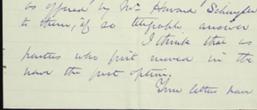 as offered by Mr. Howard Schuyler
to them; if so telegraph answer
I think that as
parties who first moved in the
have the first option
Your letter have